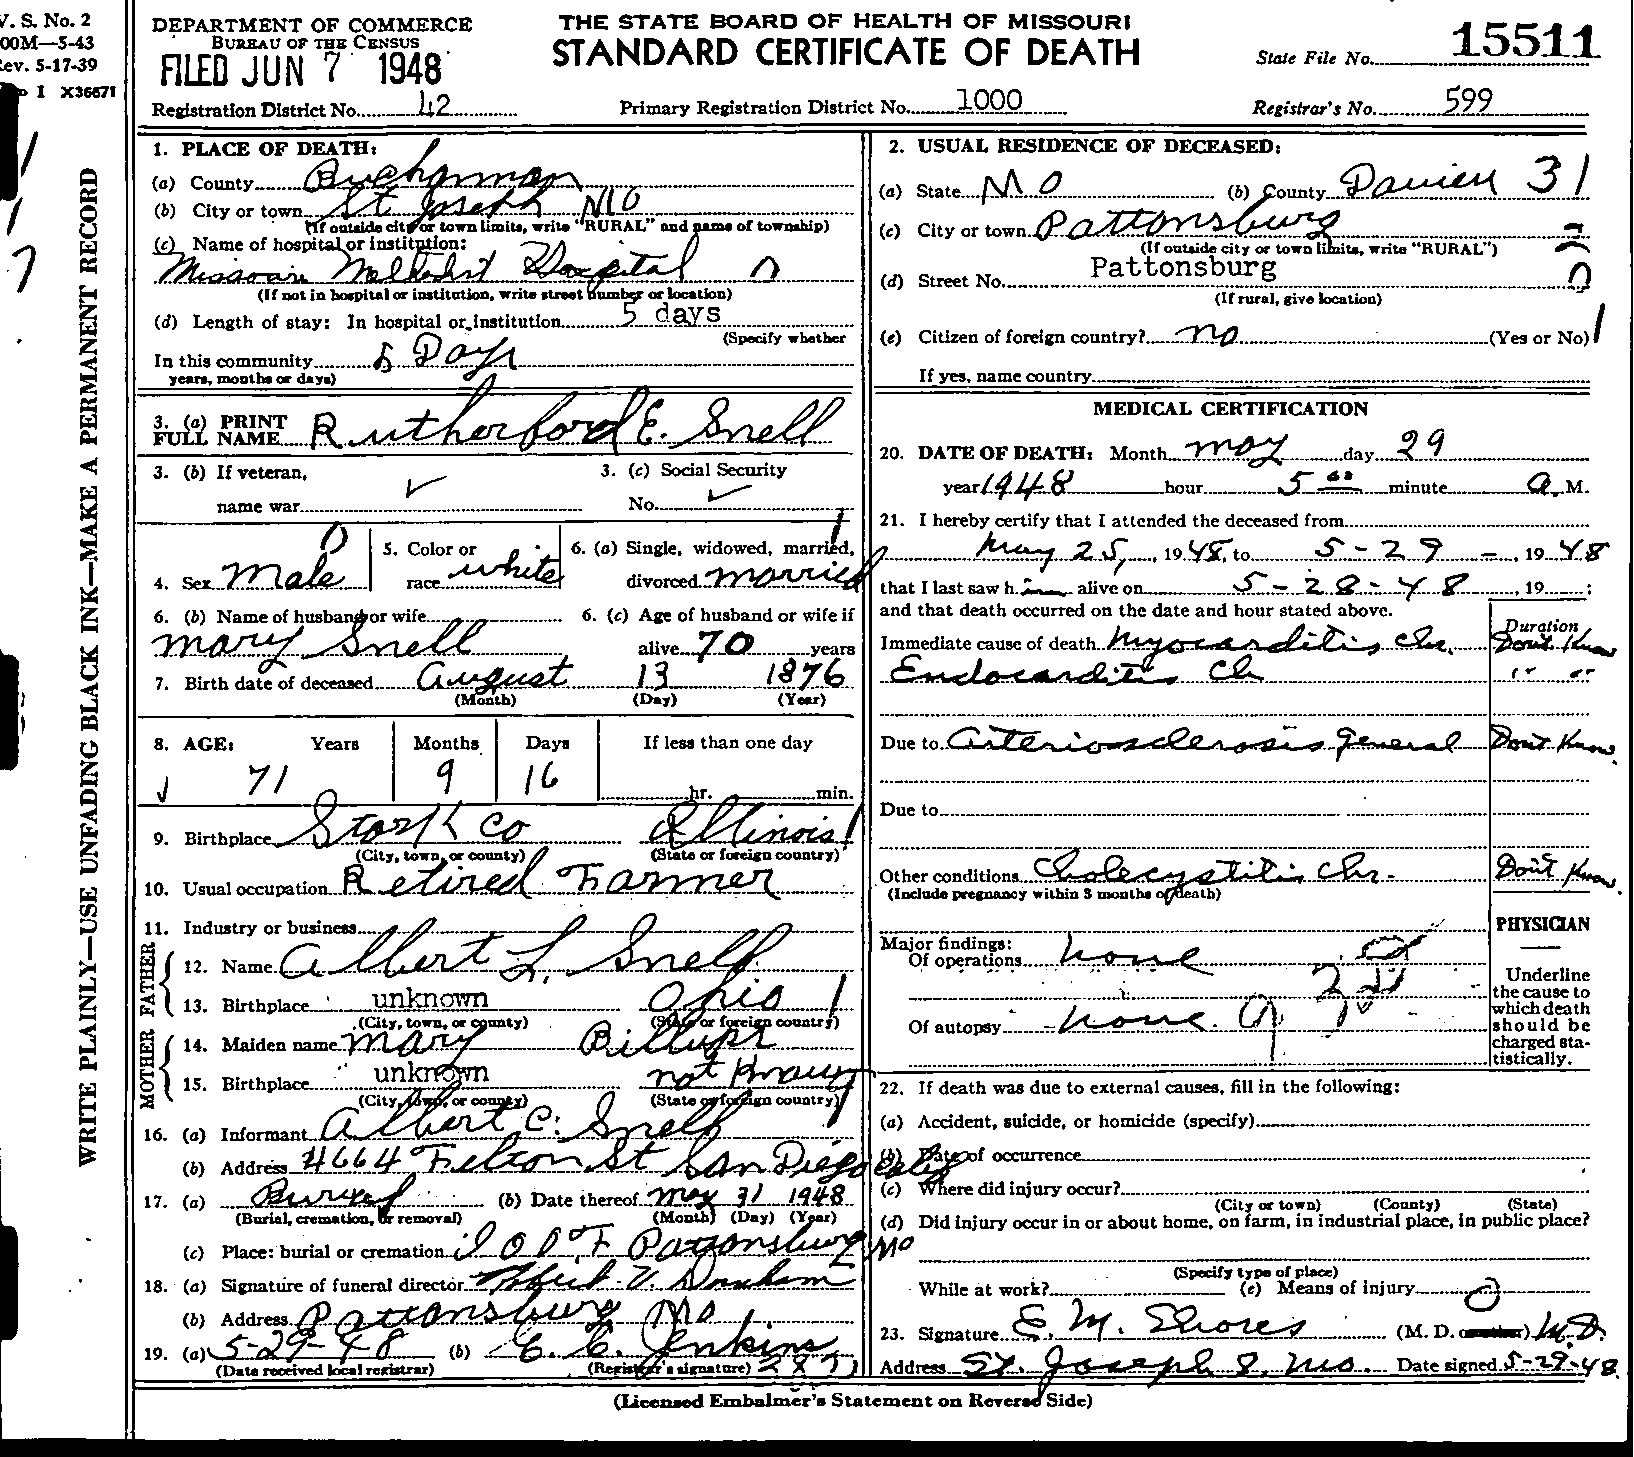 V. S. No. 2
00M—5-43
Rev. 5-17-39
I X36671
WRITE PLAINLY—USE UNFADING BLACK INK—MAKE A PERMANENT RECORD
DEPARTMENT OF COMMERCE
BUREAU OF THE CENSUS
FILED JUN 7 1948
THE STATE BOARD OF HEALTH OF MISSOURI
STANDARD CERTIFICATE OF DEATH
State File No. 15511
Registration District No. 42
Primary Registration District No. 1000
Registrar's No. 599
1. PLACE OF DEATH:
(a) County Buchanan
(b) City or town St Joseph MO
(If outside city or town limits, write "RURAL" and name of township)
(c) Name of hospital or institution:
Missouri Methodist Hospital
(If not in hospital or institution, write street number or location)
(d) Length of stay: In hospital or institution 5 days
(Specify whether
In this community 5 Days
years, months or days)
3. (a) PRINT FULL NAME Rutherford E. Snell
3. (b) If veteran,
name war
3. (c) Social Security
No.
4. Sex Male
5. Color or race white
6. (a) Single, widowed, married, divorced married
6. (b) Name of husband or wife
Mary Snell
6. (c) Age of husband or wife if
alive 70 years
7. Birth date of deceased August 13 1876
(Month) (Day) (Year)
8. AGE: Years Months Days If less than one day
71 9 16 hr. min.
9. Birthplace Stark Co Illinois
(City, town, or county) (State or foreign country)
10. Usual occupation Retired Farmer
11. Industry or business
FATHER
12. Name Albert L. Snell
13. Birthplace unknown Ohio
(City, town, or county) (State or foreign country)
MOTHER
14. Maiden name Mary Billups
15. Birthplace unknown not Known
(City, town, or county) (State or foreign country)
16. (a) Informant Albert C. Snell
(b) Address 4664 Felton St San Diego Calif
17. (a) Buried (b) Date thereof May 31 1948
(Burial, cremation, or removal) (Month) (Day) (Year)
(c) Place: burial or cremation I O O F Pattonsburg Mo
18. (a) Signature of funeral director
(b) Address Pattonsburg Mo
19. (a) 5-29-48 (b) C. C. Jenkins
(Date received local registrar) (Registrar's signature)
2. USUAL RESIDENCE OF DECEASED:
(a) State MO (b) County Daviess 31
(c) City or town Pattonsburg
(If outside city or town limits, write "RURAL")
(d) Street No. Pattonsburg
(If rural, give location)
(e) Citizen of foreign country? no (Yes or No)
If yes, name country
MEDICAL CERTIFICATION
20. DATE OF DEATH: Month May day 29
year 1948 hour 5 00 minute a. M.
21. I hereby certify that I attended the deceased from
May 25, 1948, to 5-29-, 1948
that I last saw him alive on 5-28-48, 19 ;
and that death occurred on the date and hour stated above.
Duration
Immediate cause of death Myocarditis Chr. Don't Know
Endocarditis Ch " "
Due to Arteriosclerosis general Don't Know
Due to
Other conditions Cholecystitis Chr. Don't Know
(Include pregnancy within 3 months of death)
Major findings:
Of operations none
Of autopsy none.
PHYSICIAN
Underline the cause to which death should be charged statistically.
22. If death was due to external causes, fill in the following:
(a) Accident, suicide, or homicide (specify)
(b) Date of occurrence
(c) Where did injury occur?
(City or town) (County) (State)
(d) Did injury occur in or about home, on farm, in industrial place, in public place?
(Specify type of place)
While at work? (e) Means of injury
23. Signature E. M. Shores (M. D. or other) M.D.
Address St. Joseph 8, Mo. Date signed 5-29-48
(Licensed Embalmer's Statement on Reverse Side)